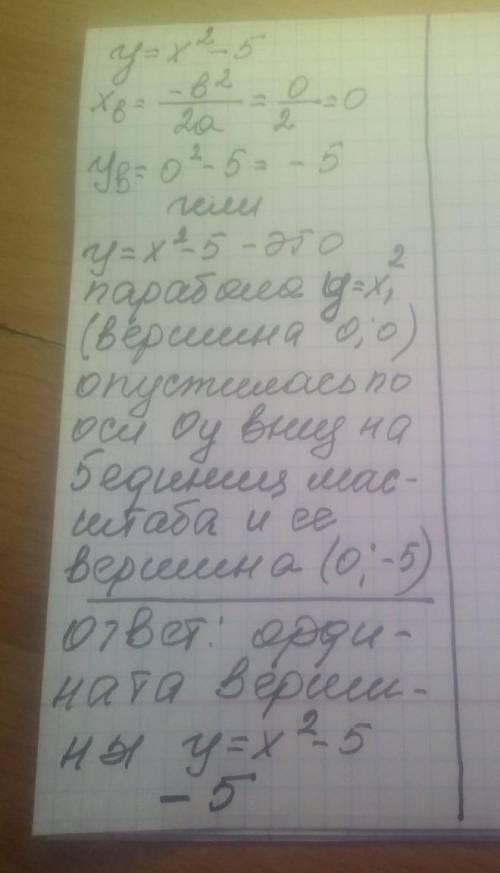 y = x² - 5
xв = -в²/2а = 0/2 = 0
yв = 0² - 5 = - 5
или
y = x² - 5 - это
парабола y = x²,
(вершина 0; 0)
опустилась по
оси Оу вниз на
5 единиц мас-
штаба и ее
вершина (0; -5)
ответ: орди-
ната верши-
ны y = x² - 5
- 5